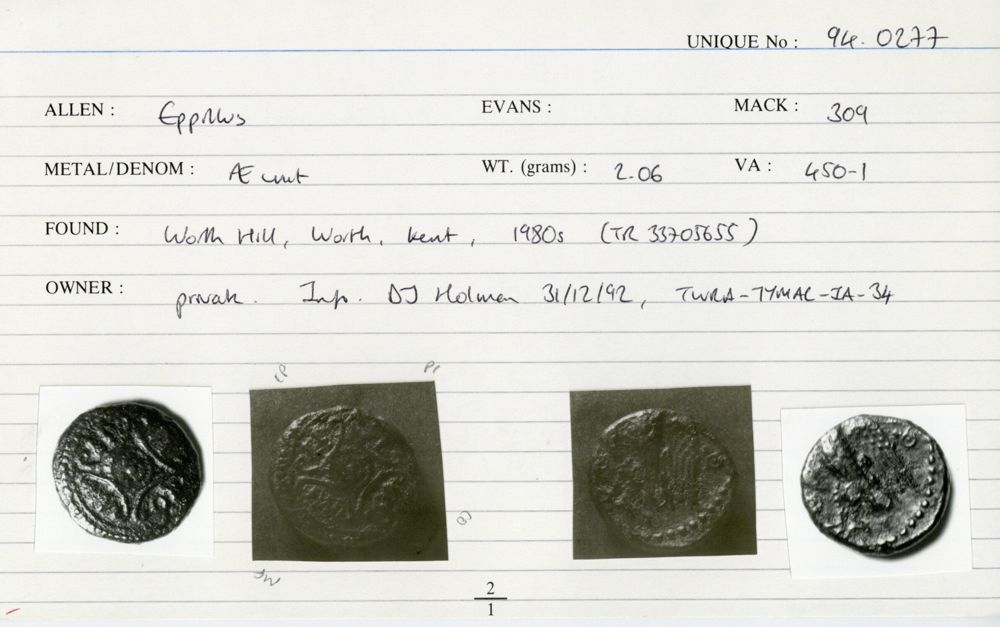 UNIQUE No : 94.0277
ALLEN : Eppillus EVANS : MACK : 309
METAL/DENOM : Æ unit WT. (grams) : 2.06 VA : 450-1
FOUND : Worth Hill, Worth, Kent, 1980s (TR 33705655)
OWNER : private. Info. DJ Holman 31/12/92, TWRA-TYMAL-IA-34
2
1